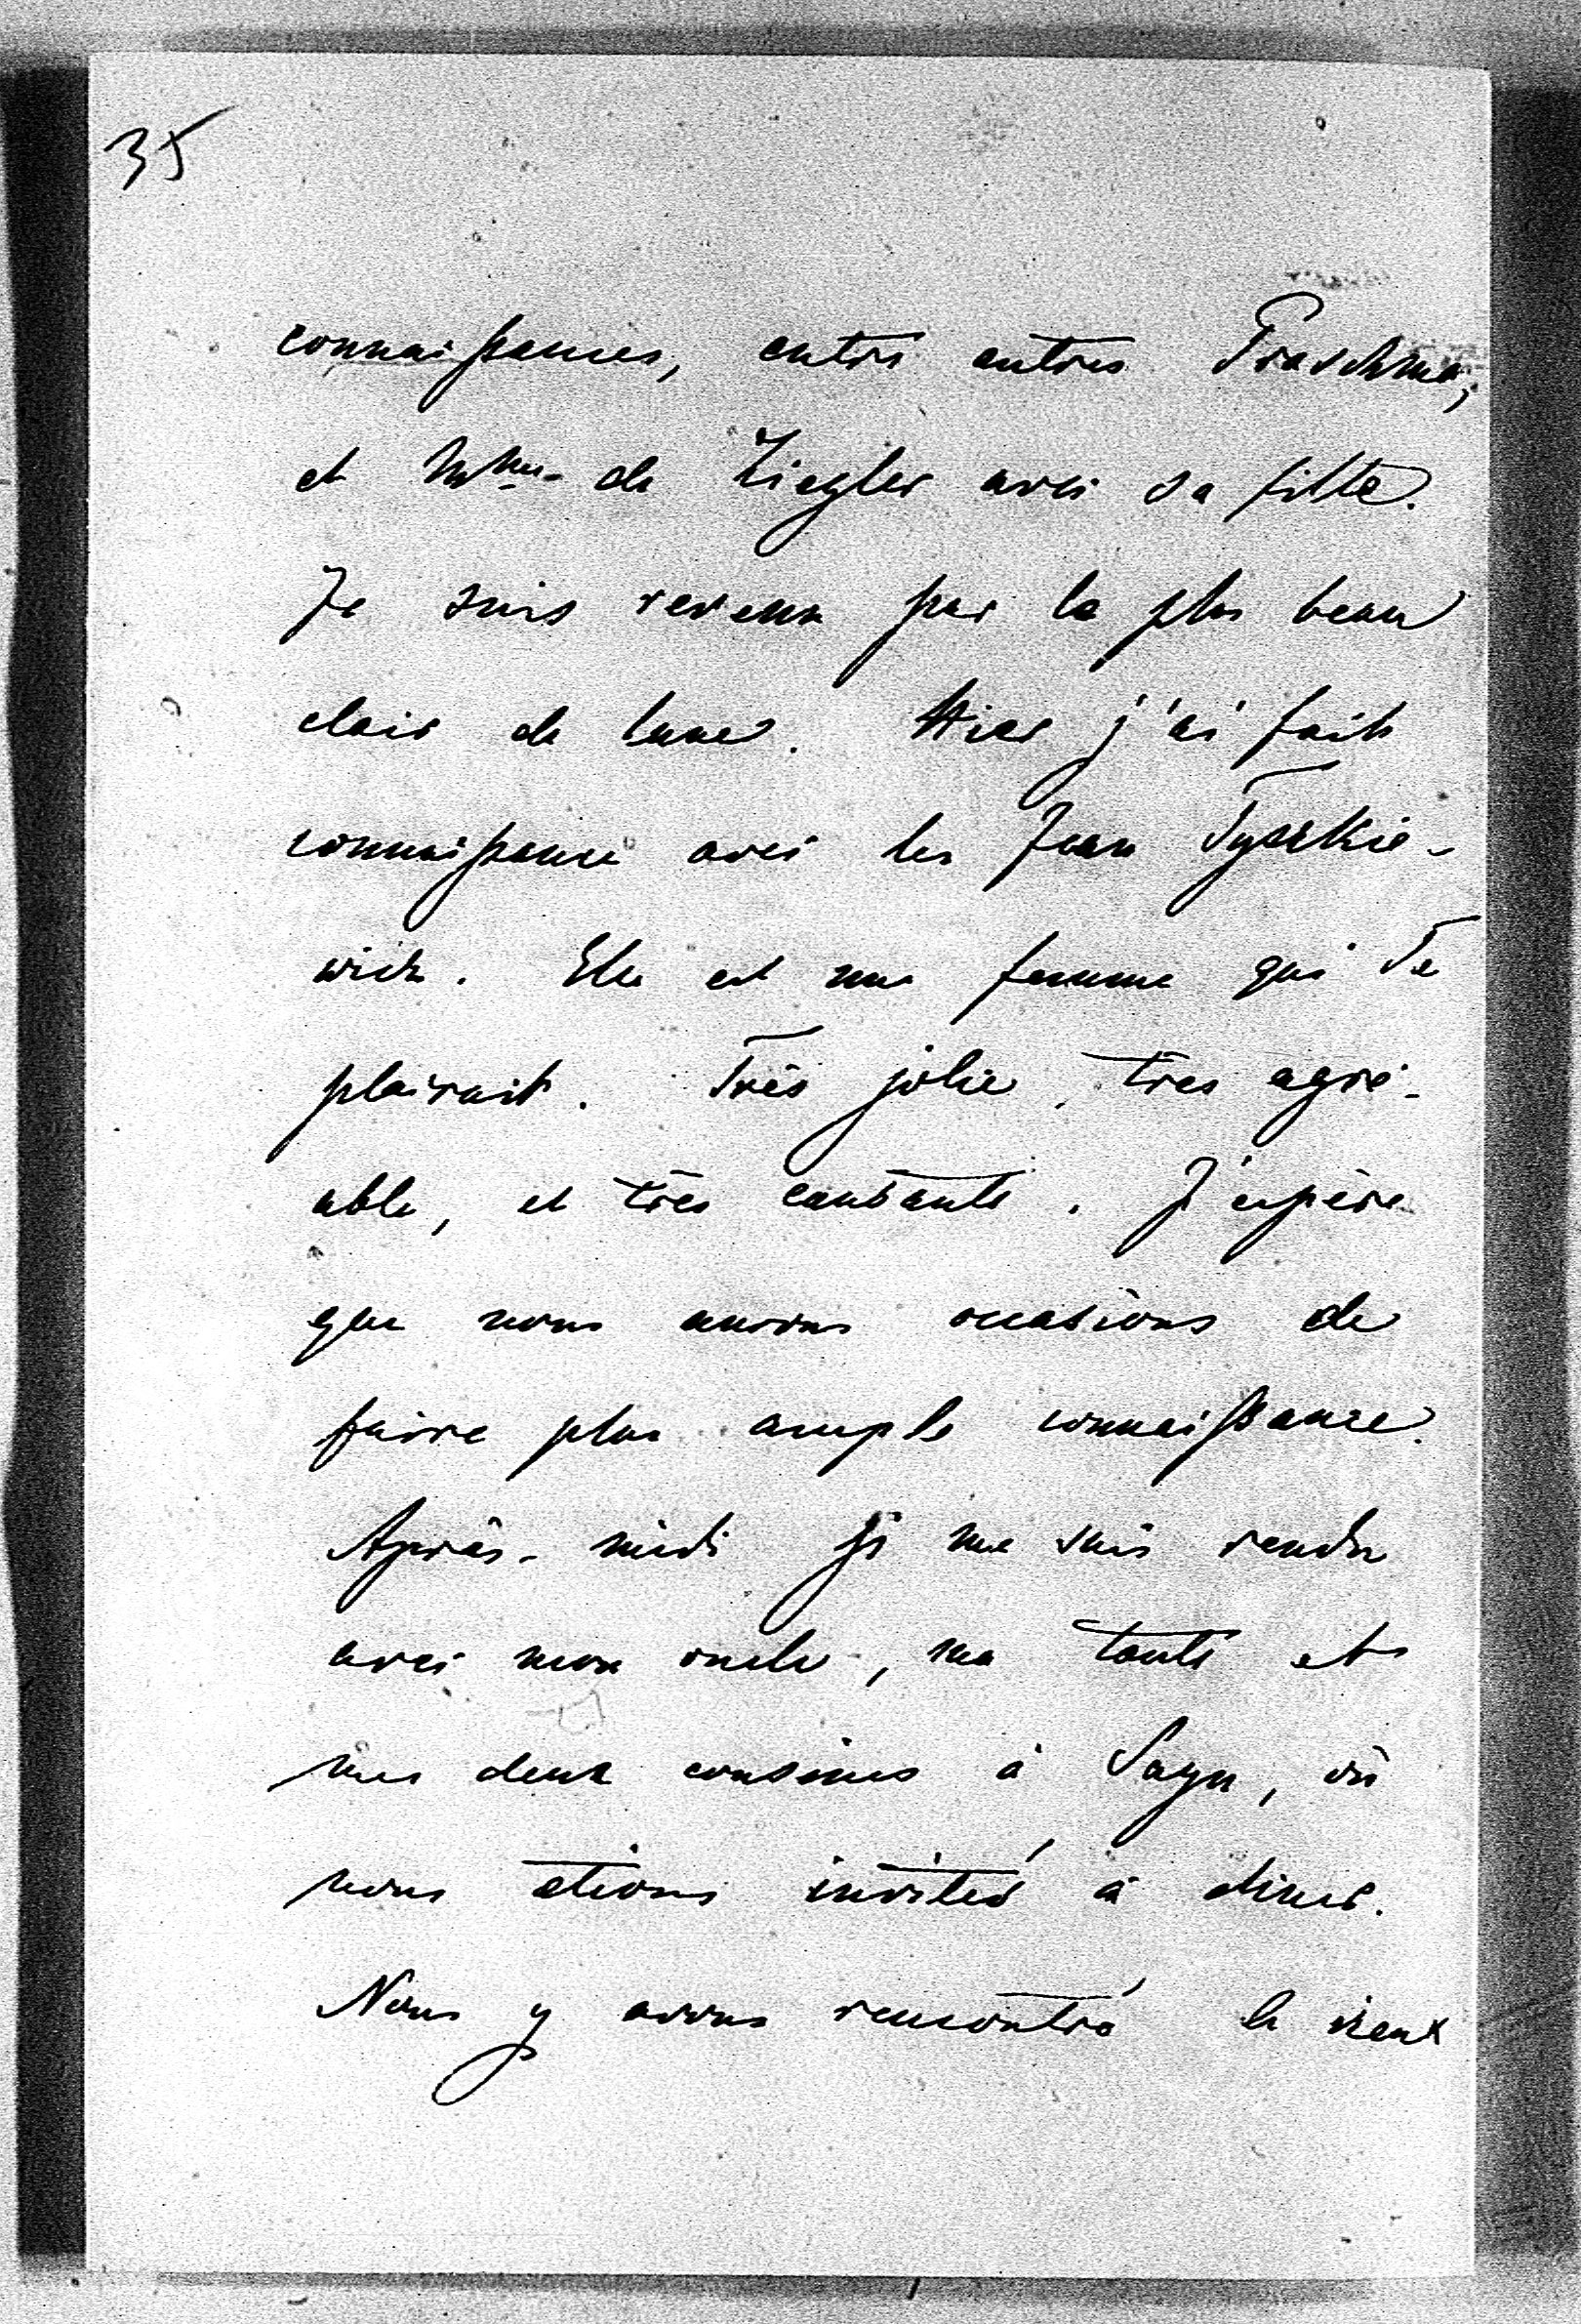 35
connaissances, entre autres Praschma,
et Mme de Ziegler avec sa fille.
Je suis revenu par le plus beau
clair de lune. Hier j'ai fait
connaissance avec les Jean Tyszkie-
wicz. Elle est une femme qui Te
plairait. Très jolie, très agré-
able, et très causante. J'espère
que nous aurons occasions de
faire plus ample connaissance.
Après-midi je me suis rendu
avec mon oncle, ma tante et
mes deux cousines à Sayn, où
nous étions invités à diner.
Nous y avons rencontré le vieux